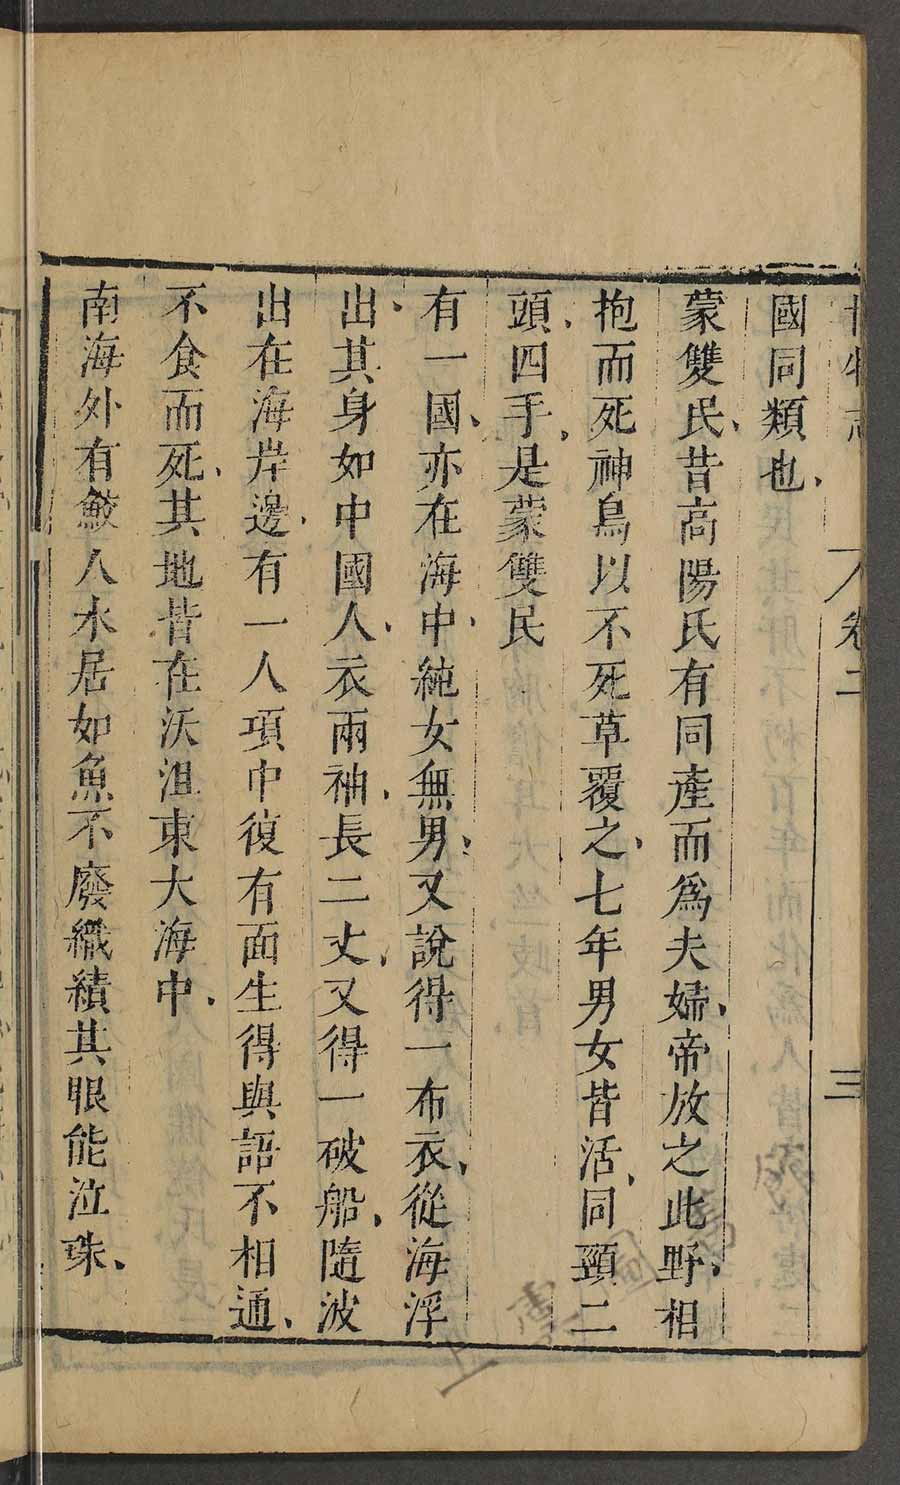 博物志 卷二 三
國同類也、
蒙雙民、昔高陽氏有同產而爲夫婦、帝放之此野、相
抱而死神鳥以不死草覆之、七年男女皆活、同頸二
頭、四手、是蒙雙民
有一國、亦在海中、純女無男、又說得一布衣、從海浮
出、其身如中國人、衣兩袖、長二丈、又得一破船、隨波
出在海岸邊、有一人項中復有面生得與語不相通、
不食而死、其地皆在沃沮東大海中、
南海外有鮫人水居如魚不廢織績其眼能泣珠、